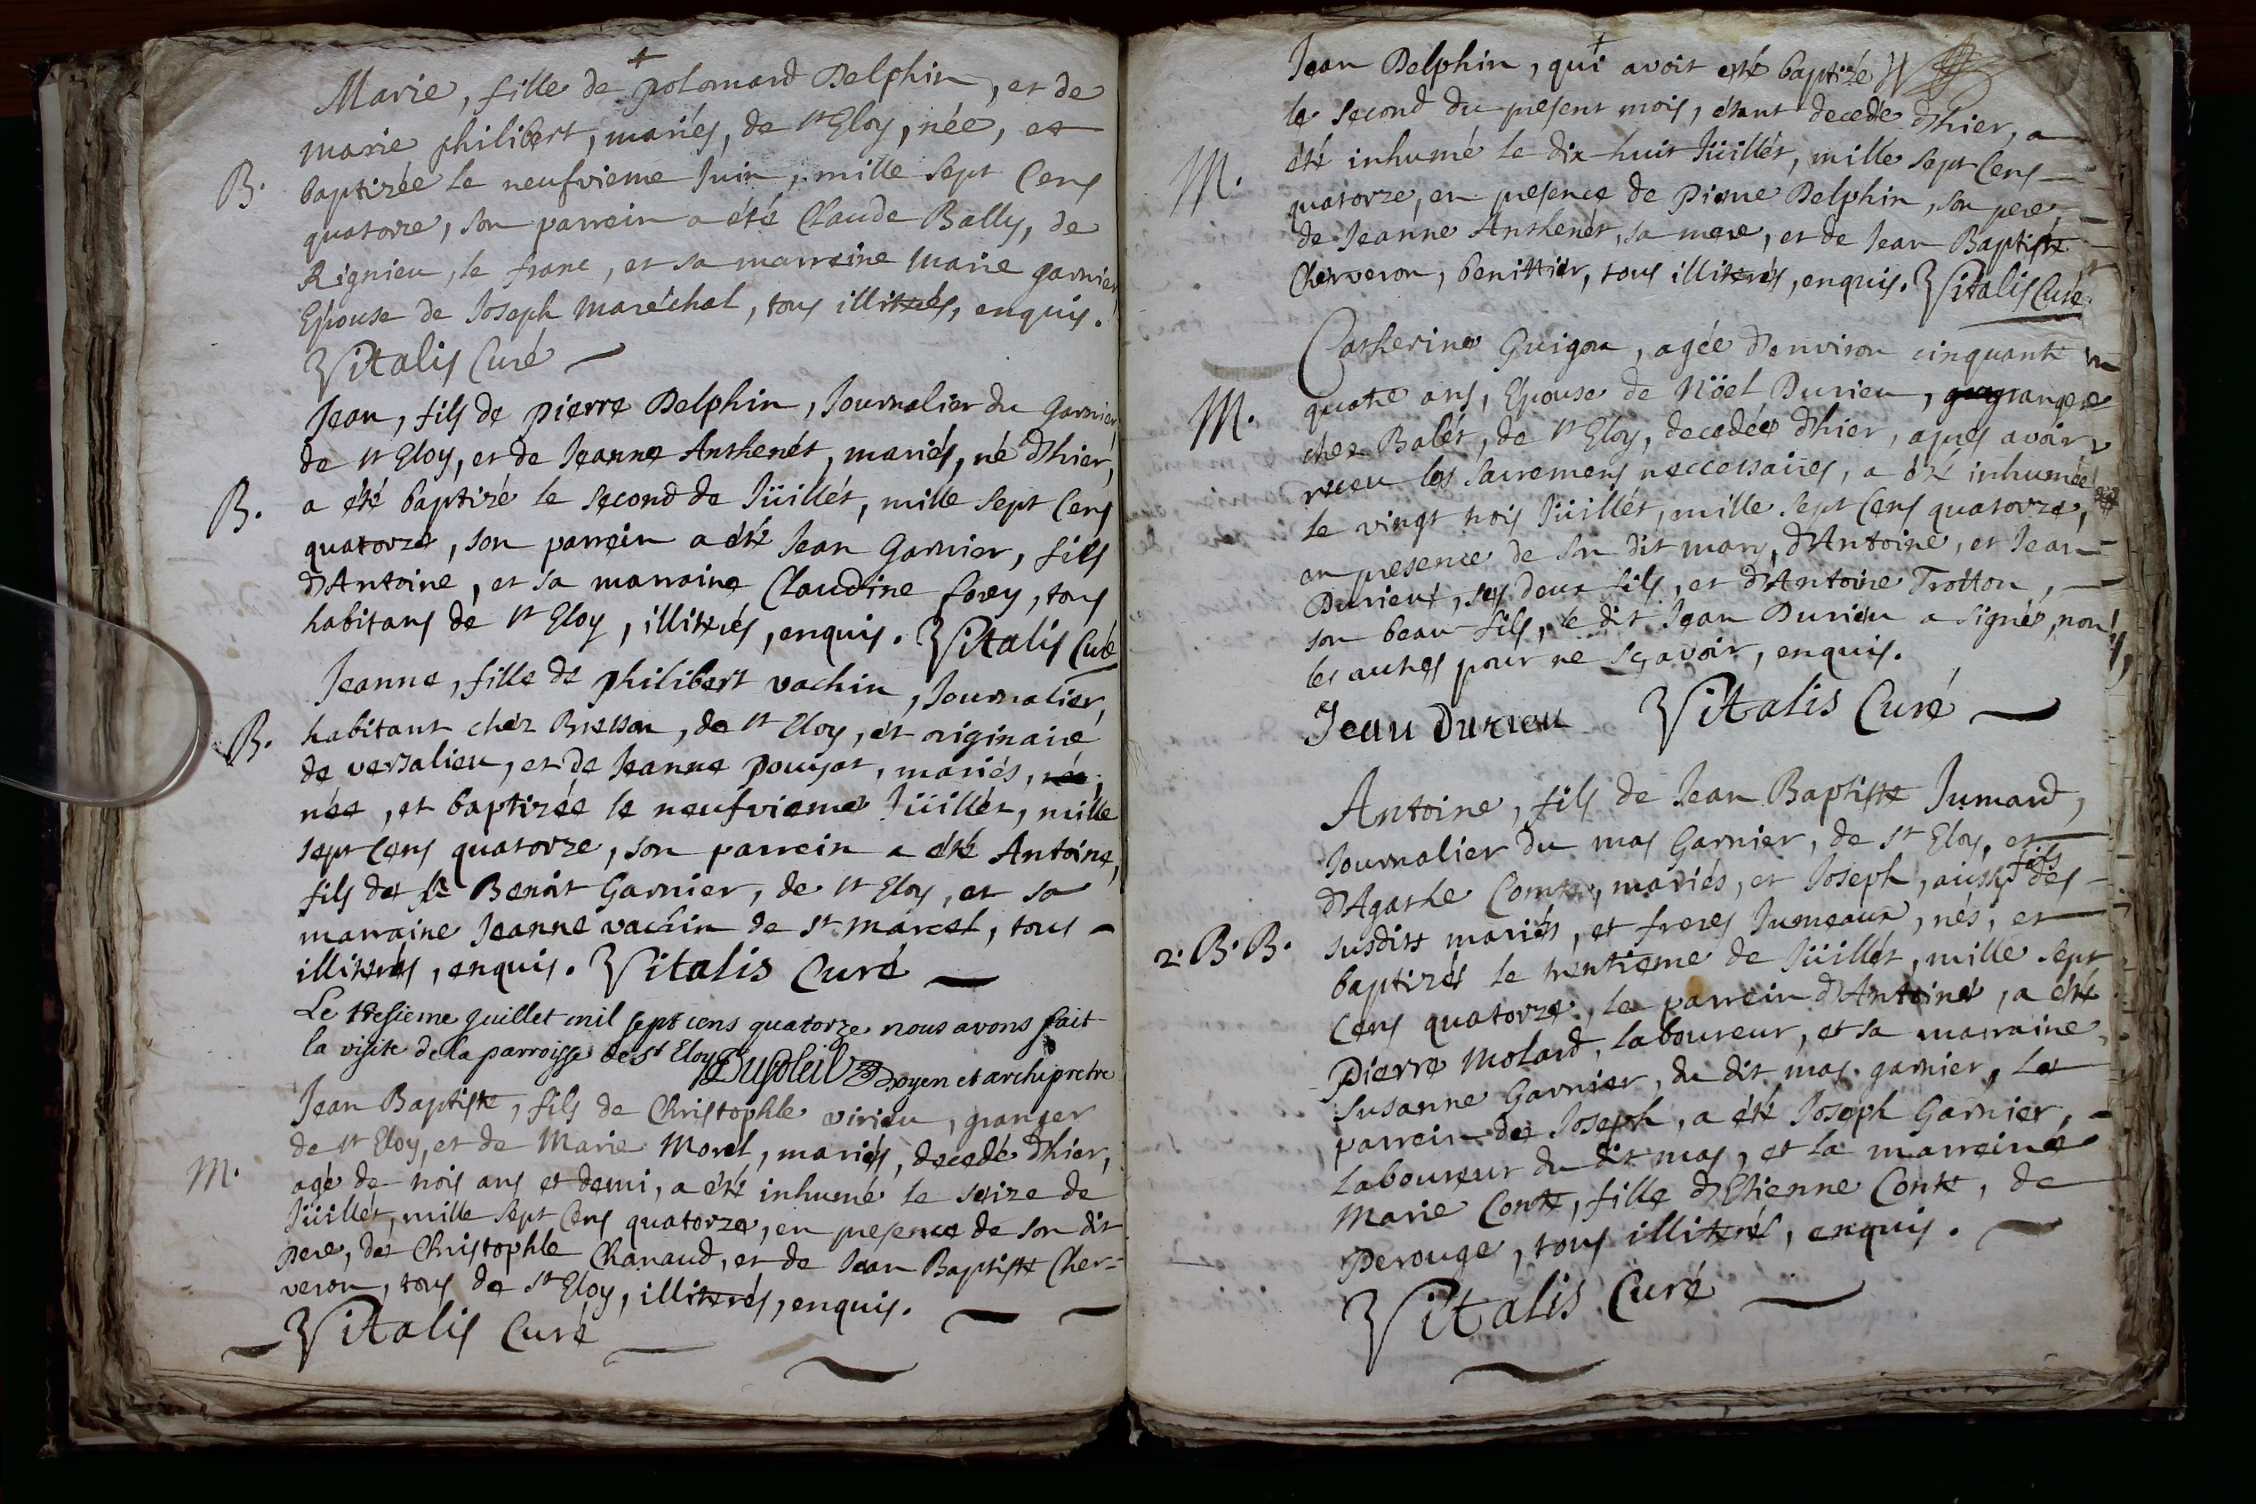 Marie, fille de polomard Delphin, et de
marie philibert, mariés, de st Eloy, née, et
B. baptizée le neufvieme Juin, mille sept Cens
quatorze, son parrein a été Claude Bally, de
Rignieu, le franc, et sa marreine marie garnier
Epouse de Joseph maréchal, tous illitérés, enquis.
Vitalis Curé
Jean, fils de pierre Delphin, Journalier du Garnier,
de st Eloy, et de Jeanne Anthenét, mariés, né d'hier,
B. a été baptizé le second de Jüillét, mille sept Cens
quatorze, son parrein a été Jean Garnier, fils
d'Antoine, et sa marraine Claudine forey, tous
habitans de st Eloy, illitérés, enquis. Vitalis Curé
Jeanne, fille de philibert vachin, Journalier,
B. habitant chéz Bresson, de st Eloy, ét originaire
de versalieu, et de Jeanne poujat, mariés, née,
née, et baptizée le neufvieme Jüillét, mille
sept Cens quatorze, son parrein a été Antoine,
fils de Benoit Garnier, de st Eloy, et sa
marraine Jeanne vachin de st marcel, tous
illitérés, enquis. Vitalis Curé
Le tresieme juillet mil sept cens quatorze nous avons fait
la visite de la parroisse de st Eloy Dusoleil Doyen et archiprétre
Jean Baptiste, fils de Christophle virieu, granger
de st Eloy, et de Marie Morél, mariés, decedé d'hier,
M. agé de trois ans et demi, a été inhumé le seize de
Jüillét, mille sept Cens quatorze, en presence de son dit
pere, de Christophle Chanaud, et de Jean Baptiste Cher=
veron, tous de st Eloy, illitérés, enquis.
Vitalis Curé
Jean Delphin, qui avoit esté baptizé
le second du present mois, étant decedé d'hier, a
M. été inhumé le dix huit Jüillét, mille sept Cens
quatorze, en presence de Pierre Delphin, son pere,
de Jeanne Anthenét, sa mere, et de Jean Baptiste
Cherveron, benittier, tous illitérés, enquis. Vitalis Curé
Catherine Guigou, agée d'environ cinquante
M. quatre ans, Epouse de Nöel Durieu, grangere
chez Balét, de st Eloy, decedée d'hier, apres avoir
receu les sacremens neccessaires, a été inhumée
le vingt trois Jüillét, mille sept Cens quatorze,
en presence de son dit mary, d'Antoine, et Jean
Durieu, ses deux fils, et d'Antoine Trotton,
son beau fils, le dit Jean Durieu a signé, non
les autres pour ne sçavoir, enquis.
Jean Durieu Vitalis Curé
Antoine, fils de Jean Baptiste Jumard,
Journalier du mas Garnier, de st Eloy, et
d'Agathe Comte, mariés, et Joseph, aussy fils des
2. B. B. susdits mariés, et freres Jumeaux, nés, et
baptizés le trentieme de Jüillét, mille sept
Cens quatorze, le parrein d'Antoine, a été
Pierre Molard, laboureur, et sa marraine
Susanne Garnier, du dit mas garnier, le
parrein de Joseph, a été Joseph Garnier,
laboureur du dit mas, et la marreine
Marie Conte, fille d'Etienne Conte, de
Perouge, tous illitérés, enquis.
Vitalis Curé